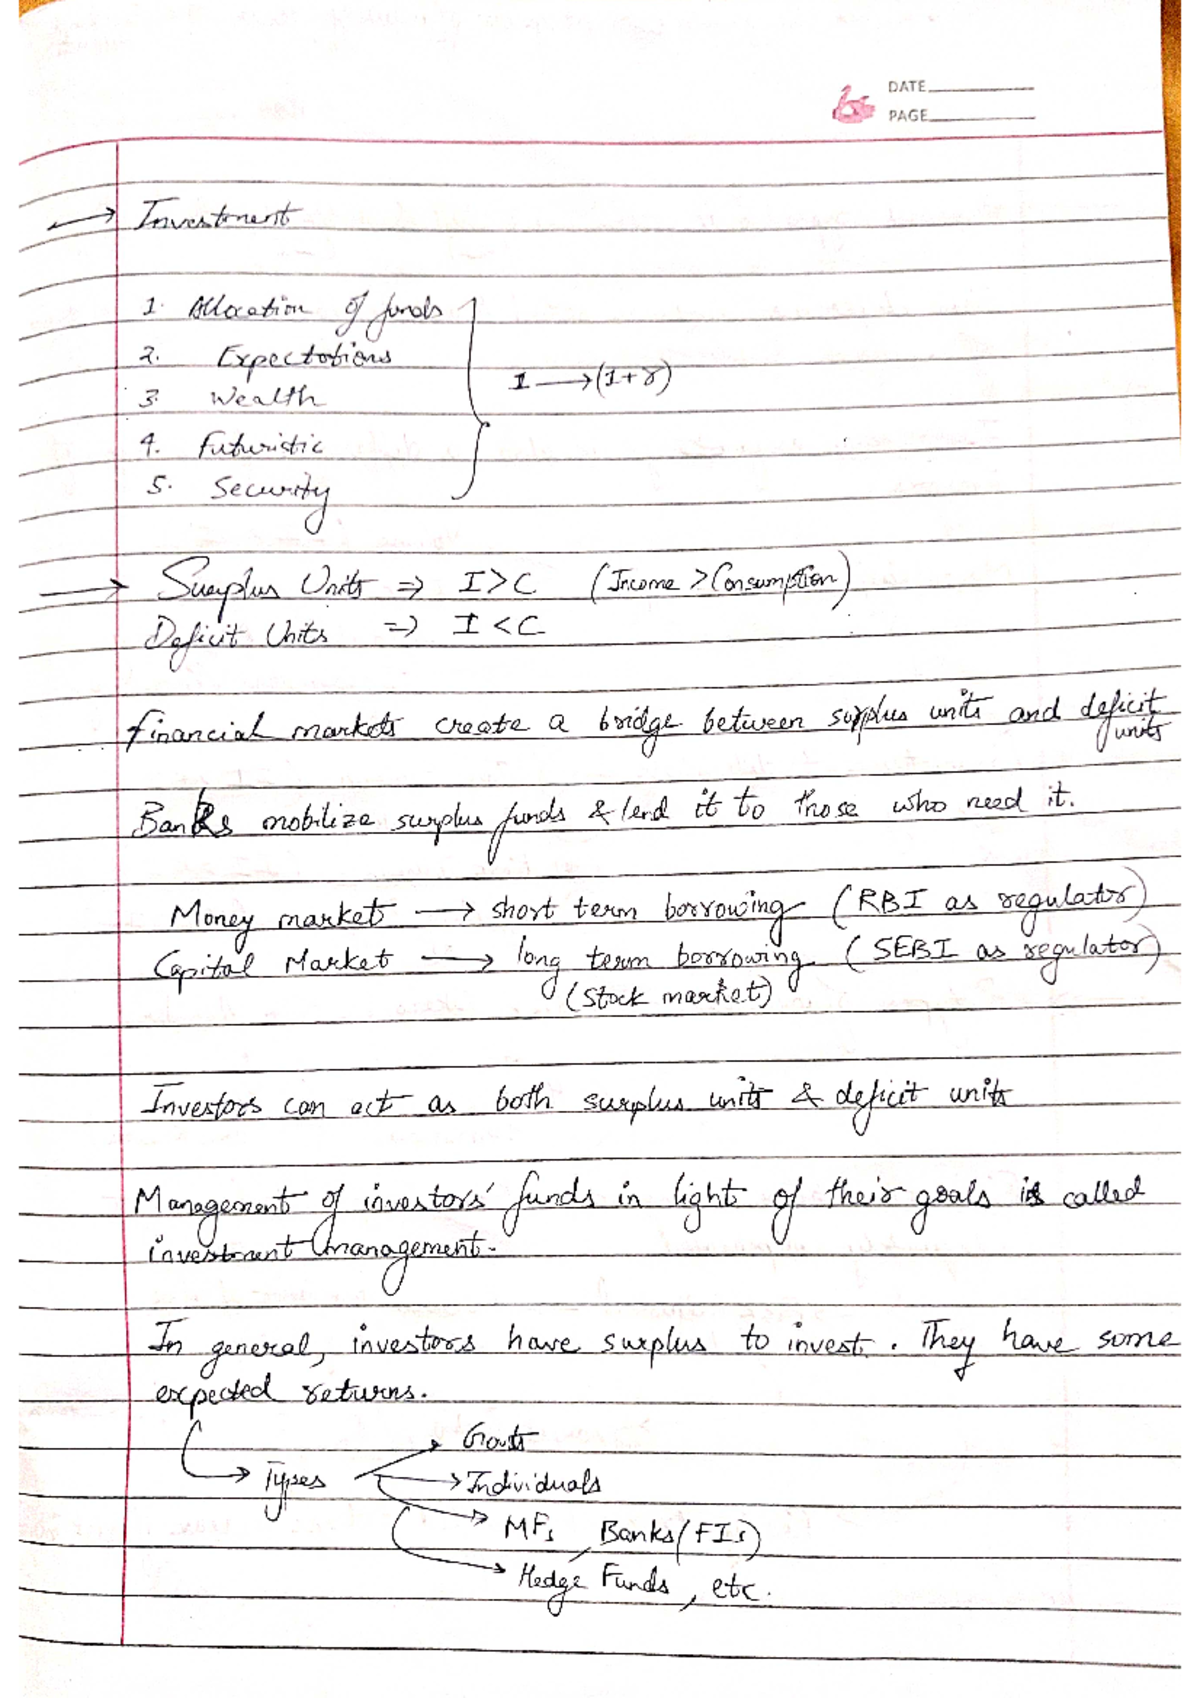 DATE
PAGE
→ Investment
1. Allocation of funds
2. Expectations
3. Wealth
4. Futuristic
5. Security
I → (I+r)
→ Surplus Units ⇒ I>C (Income > Consumption)
Deficit Units ⇒ I<C
Financial markets create a bridge between surplus units and deficit
units
Banks mobilize surplus funds & lend it to those who need it.
Money market → short term borrowing (RBI as regulator)
Capital Market → long term borrowing (SEBI as regulator)
(Stock market)
Investors can act as both surplus units & deficit units
Management of investors' funds in light of their goals is called
investment management.
In general, investors have surplus to invest. They have some
expected returns.
→ Govts
→ Types → Individuals
→ MFs, Banks (FIs)
→ Hedge Funds, etc.